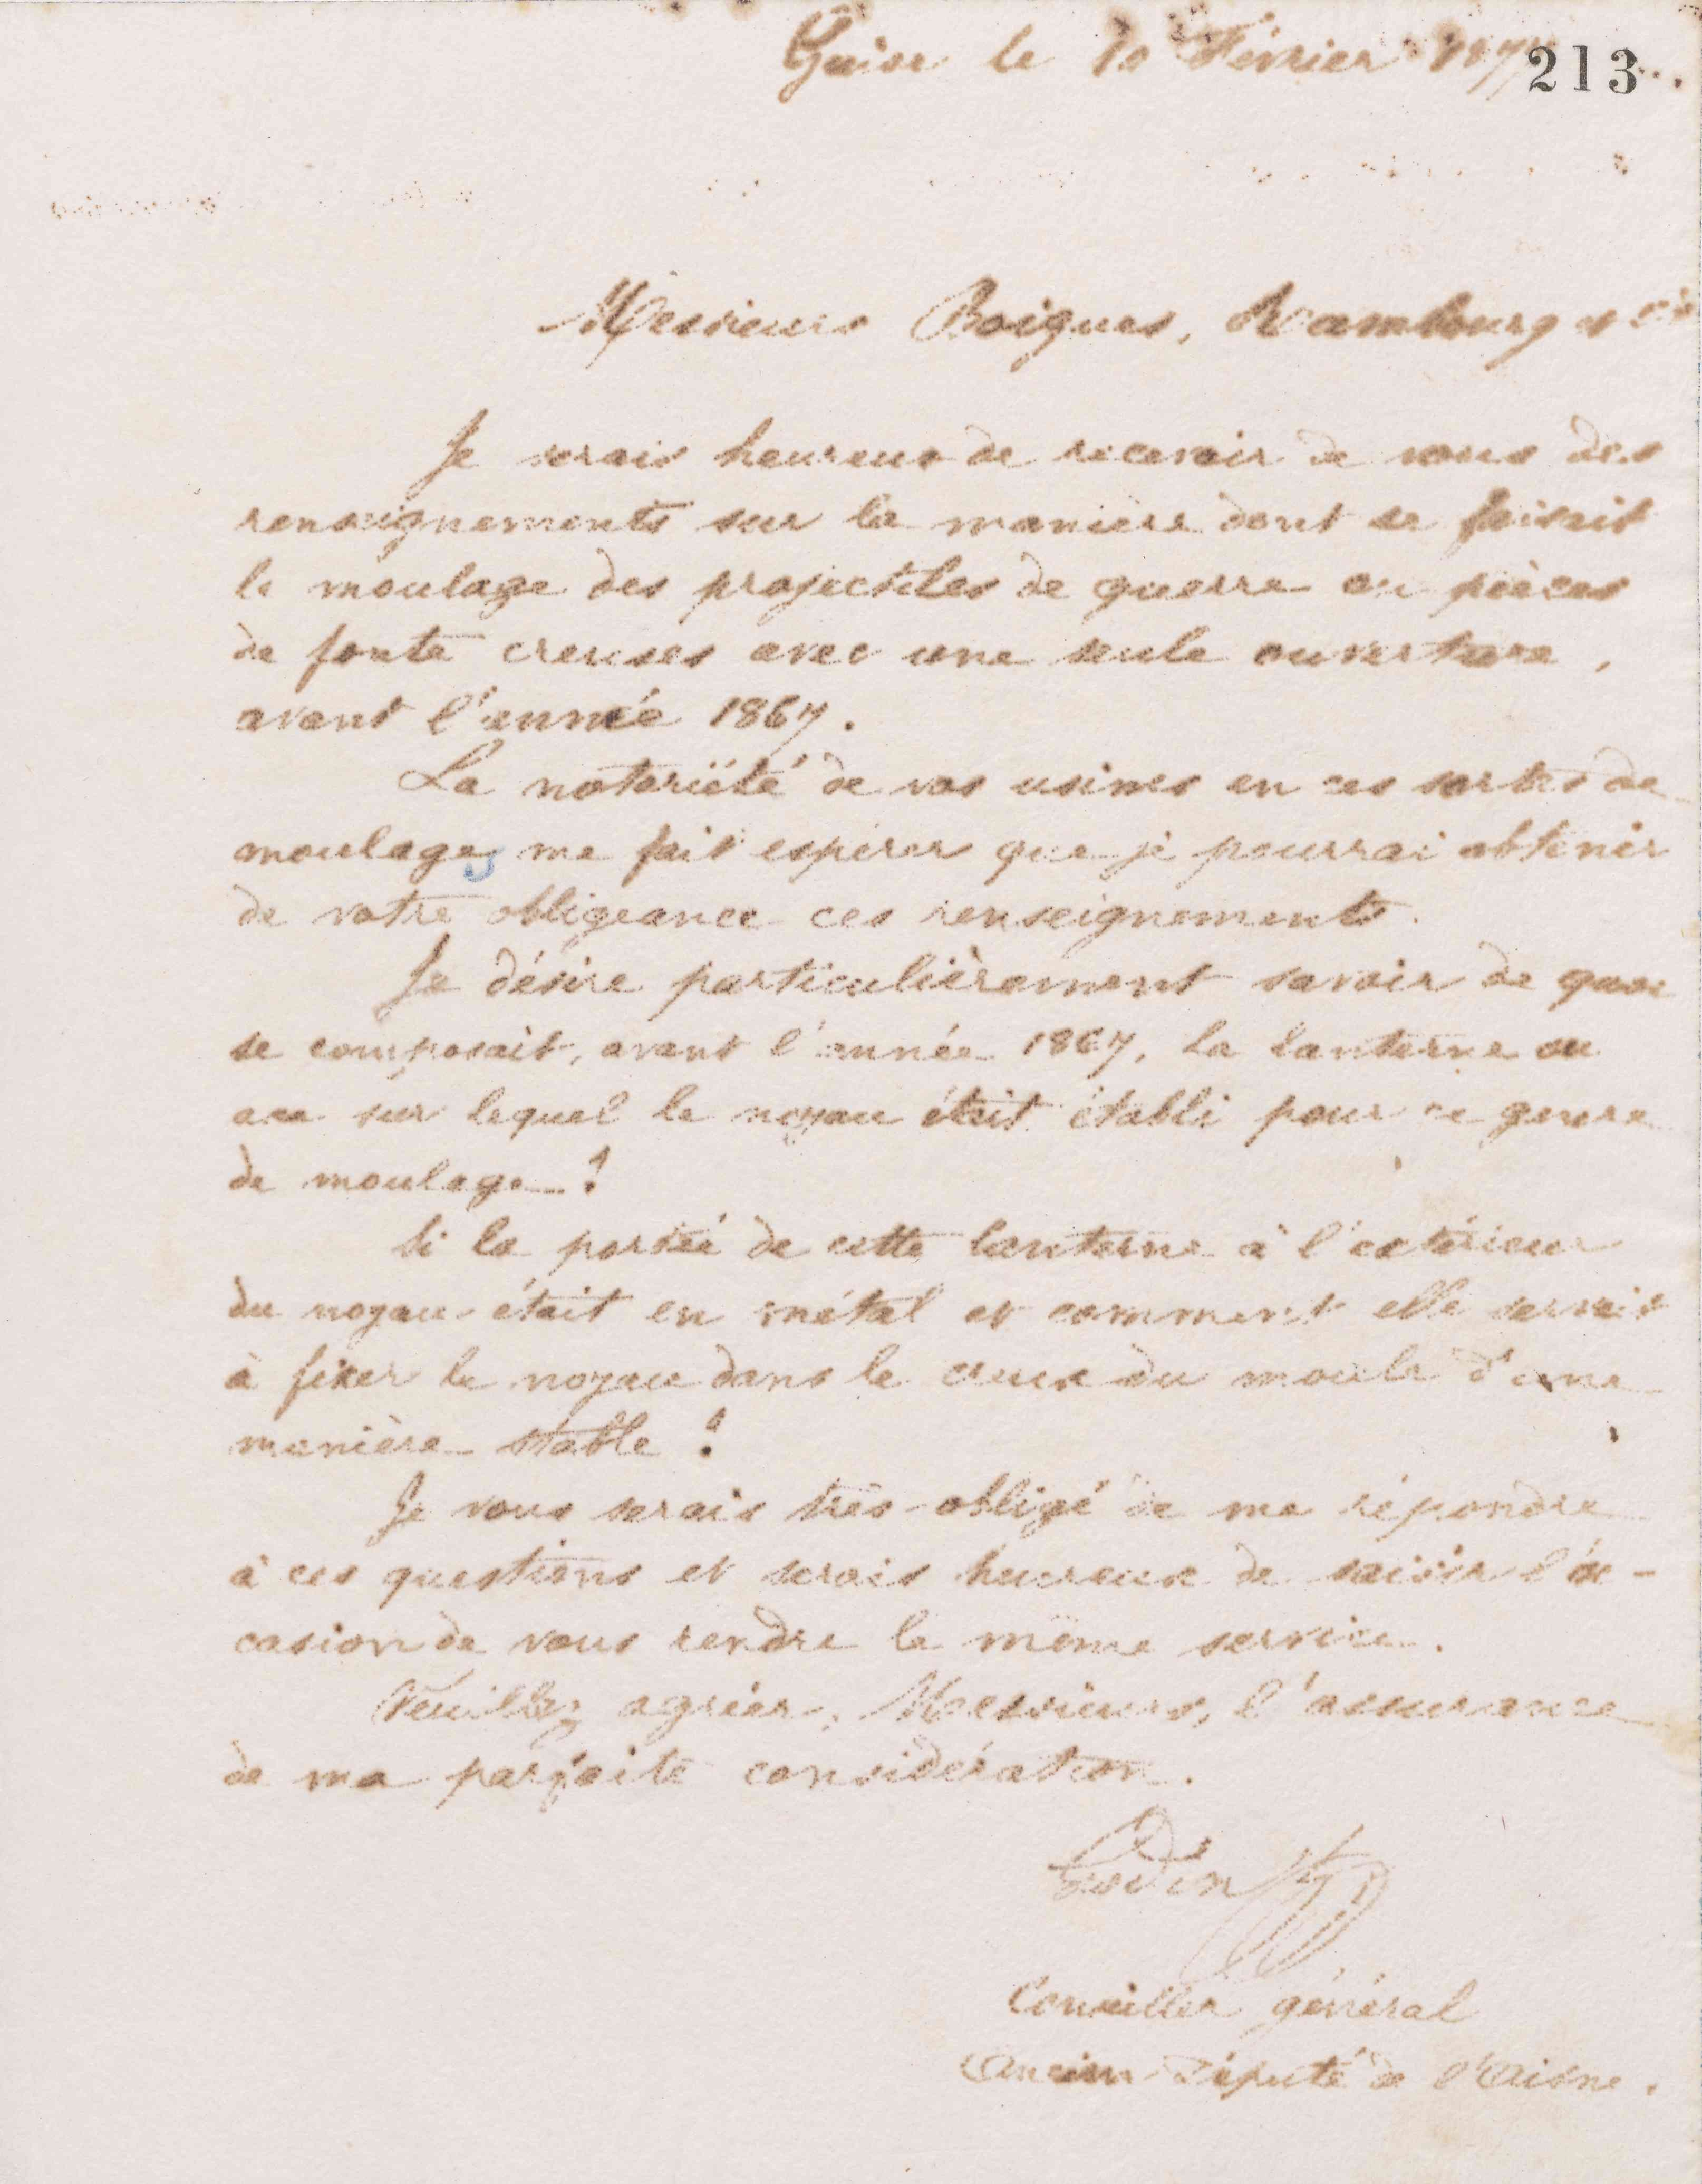 Guise le 10 Février 1877
213
Messieurs Boigues, Rambourg et Cie
Je serais heureux de recevoir de vous des
renseignements sur la manière dont se faisait
le moulage des projectiles de guerre ou pièces
de fonte creuses avec une seule ouverture,
avant l'année 1867.
La notoriété de vos usines en ces sortes de
moulages me fait espérer que je pourrai obtenir
de votre obligeance ces renseignements.
Je désire particulièrement savoir de quoi
se composait, avant l'année 1867, la lanterne ou
axe sur lequel le noyau était établi pour ce genre
de moulage ?
Si la portée de cette lanterne à l'extérieur
du noyau était en métal et comment elle servait
à fixer le noyau dans le creux du moule d'une
manière stable ?
Je vous serais très-obligé de me répondre
à ces questions et serais heureux de saisir l'oc-
casion de vous rendre le même service.
Veuillez agréer, Messieurs, l'assurance
de ma parfaite considération.
Godin
Conseiller général
Ancien Député de l'Aisne.